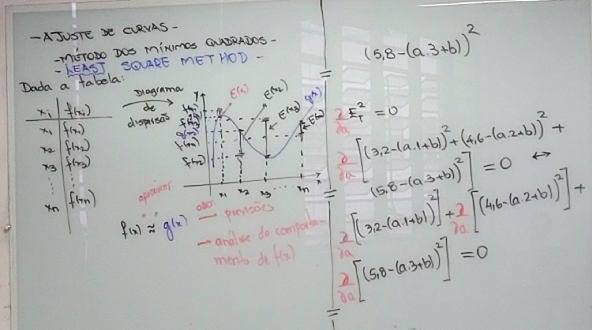 - AJUSTE DE CURVAS -
- MÉTODO DOS MÍNIMOS QUADRADOS -
- LEAST SQUARE METHOD -
Dada a tabela:
xi | f(xi)
x1 | f(x1)
x2 | f(x2)
x3 | f(x3)
xn | f(xn)
Diagrama
de
dispersão
y
E(x2)
E(x3)
g(x)
x
x1 x2 x3 xn
aproximar
f(x) ≈ g(x)
→ previsões
→ análise do comporta-
mento de f(x)
(5,8-(a.3+b))²
∂/∂a E_T² = 0
∂/∂a [(3,2-(a.1+b))²+(4,6-(a.2+b))²+
(5,8-(a.3+b))²] = 0 ↔
∂/∂a [(3,2-(a.1+b))²] + ∂/∂a [(4,6-(a.2+b))²] +
∂/∂a [(5,8-(a.3+b))²] = 0